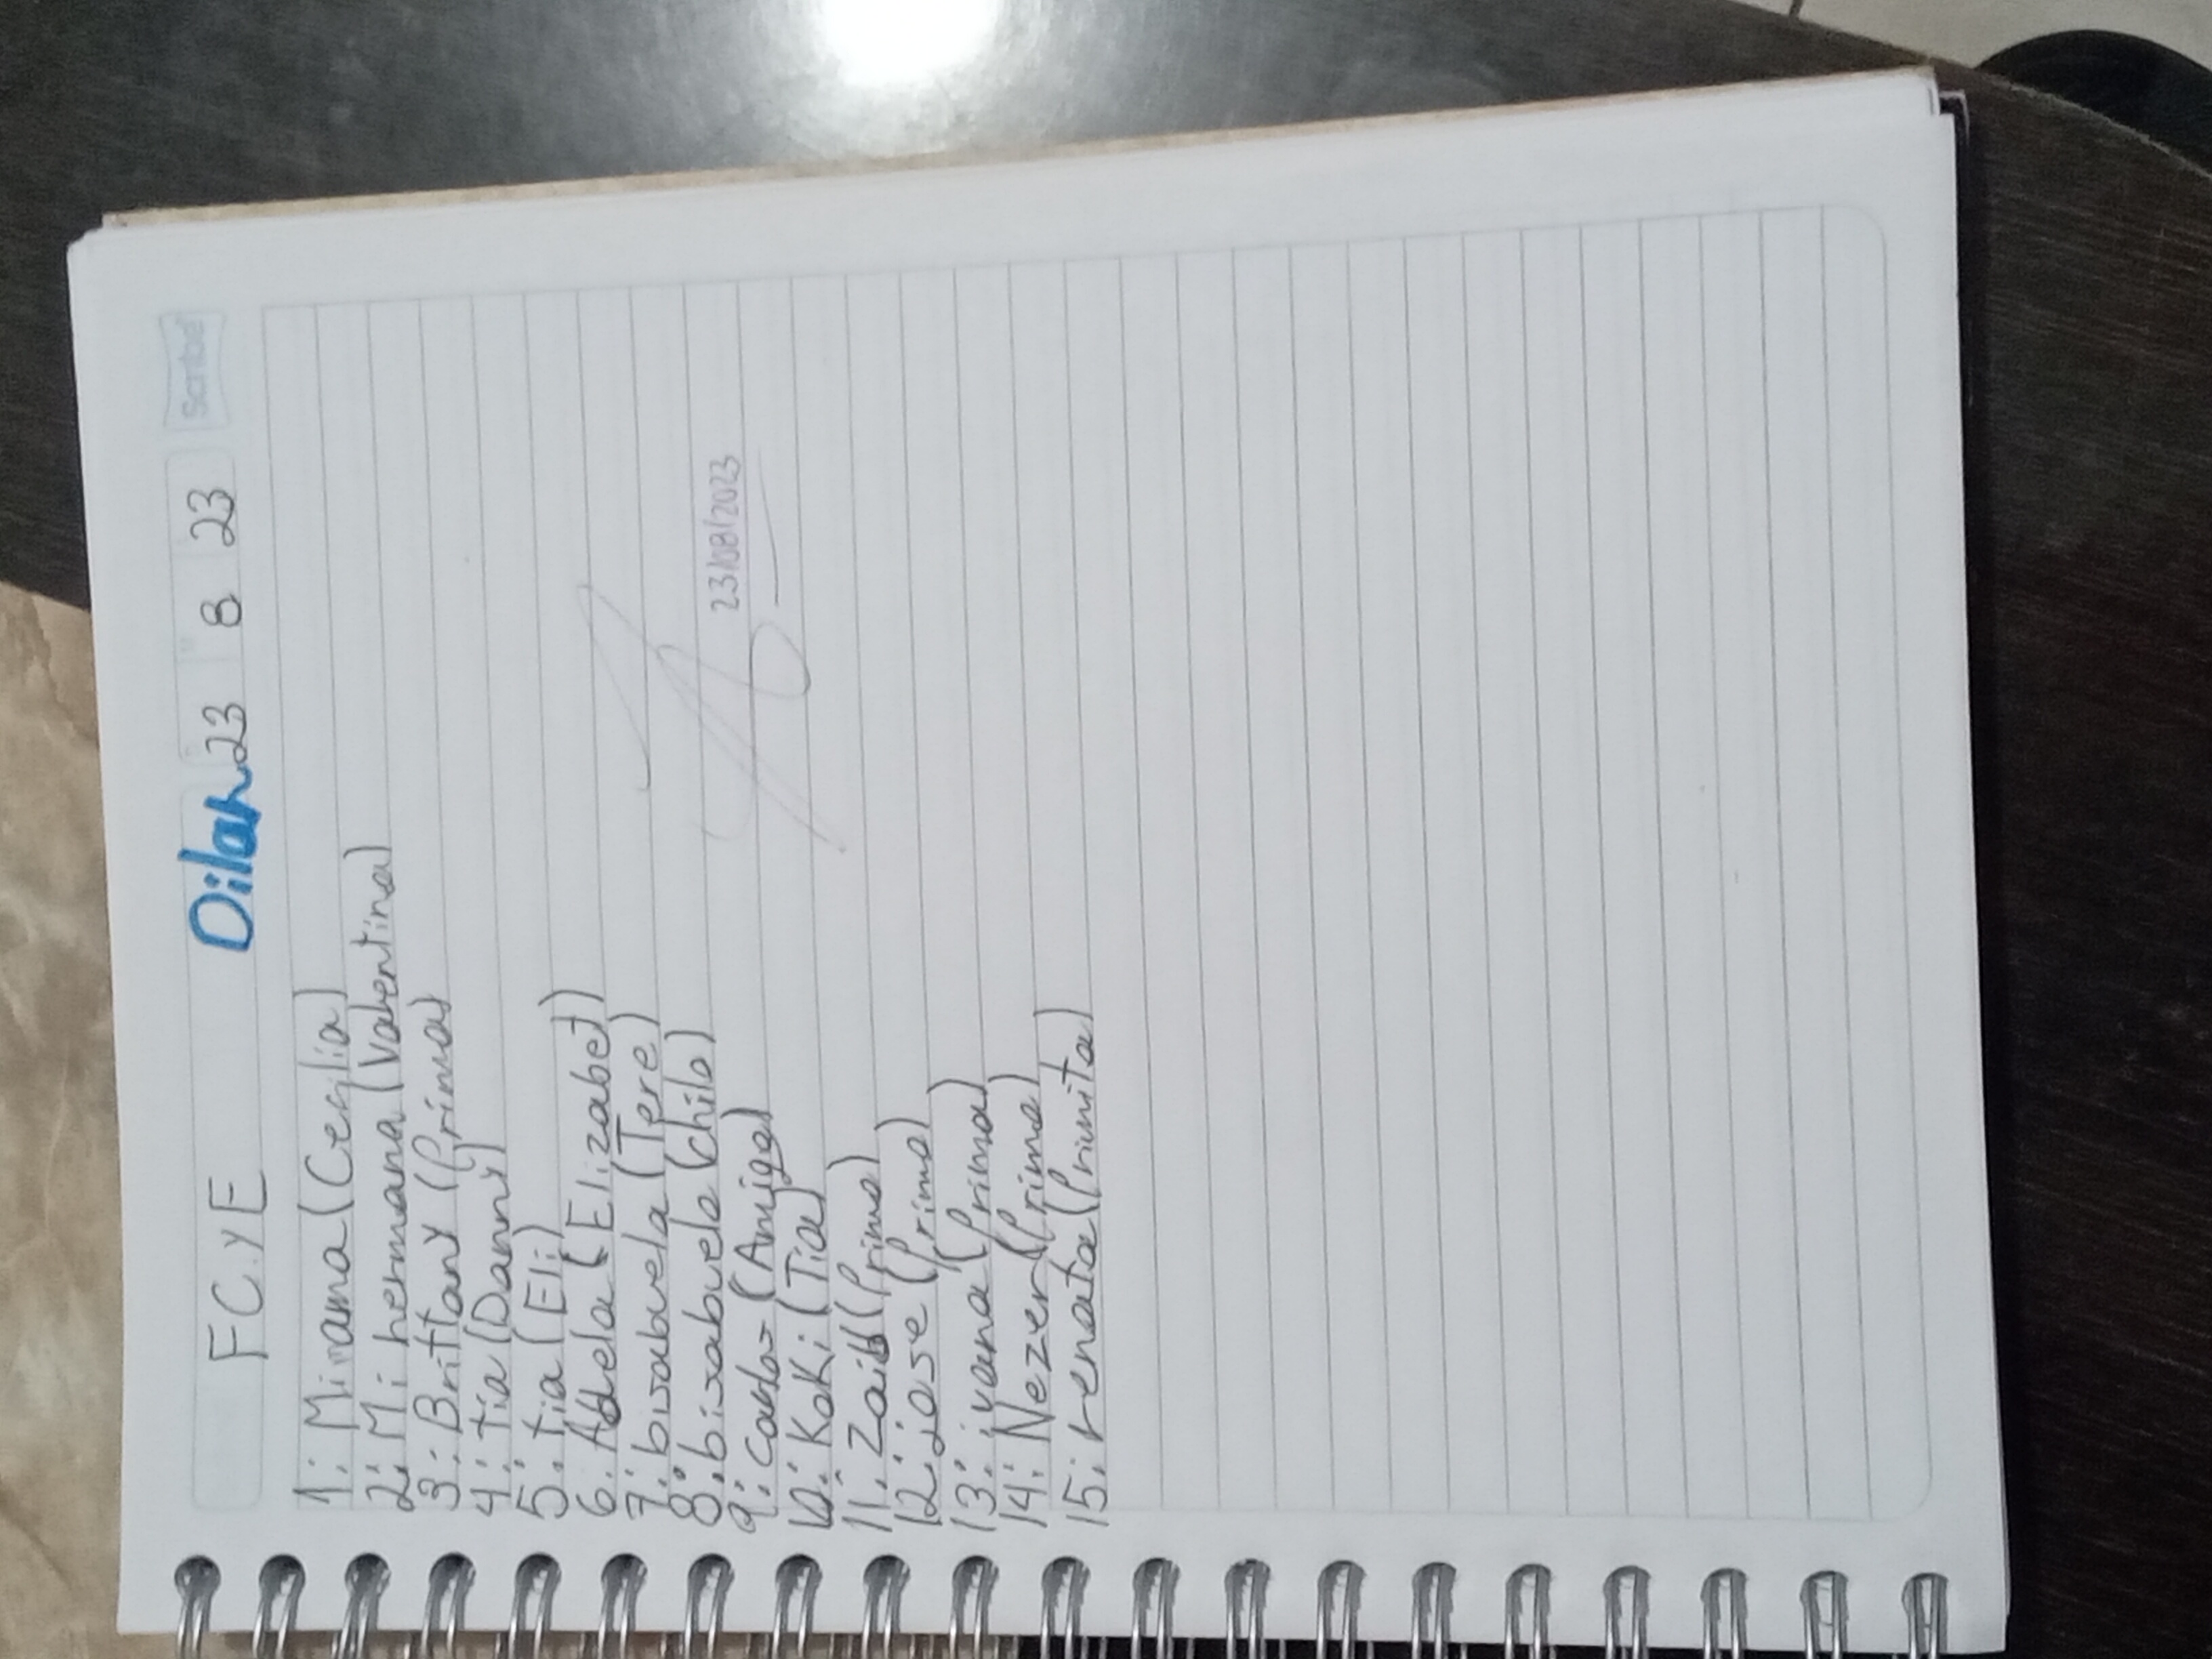 F.C.yE Dilan 23 8 23
Scribe
1: Mi mama (Cecilia)
2: Mi hermana (Valentina)
3: Brittany (Prima)
4: tia (Danny)
5: tia (Eli)
6: Abuela (Elizabet)
7: bisabuela (Tere)
8: bisabuelo (chilo)
9: (Amigo)
10: Koki (Tia)
11: Zaid (Primo)
12: jose (Primo)
13: ivana (Prima)
14: Nezer (Primo)
15: renata (Primita)
23/08/2023